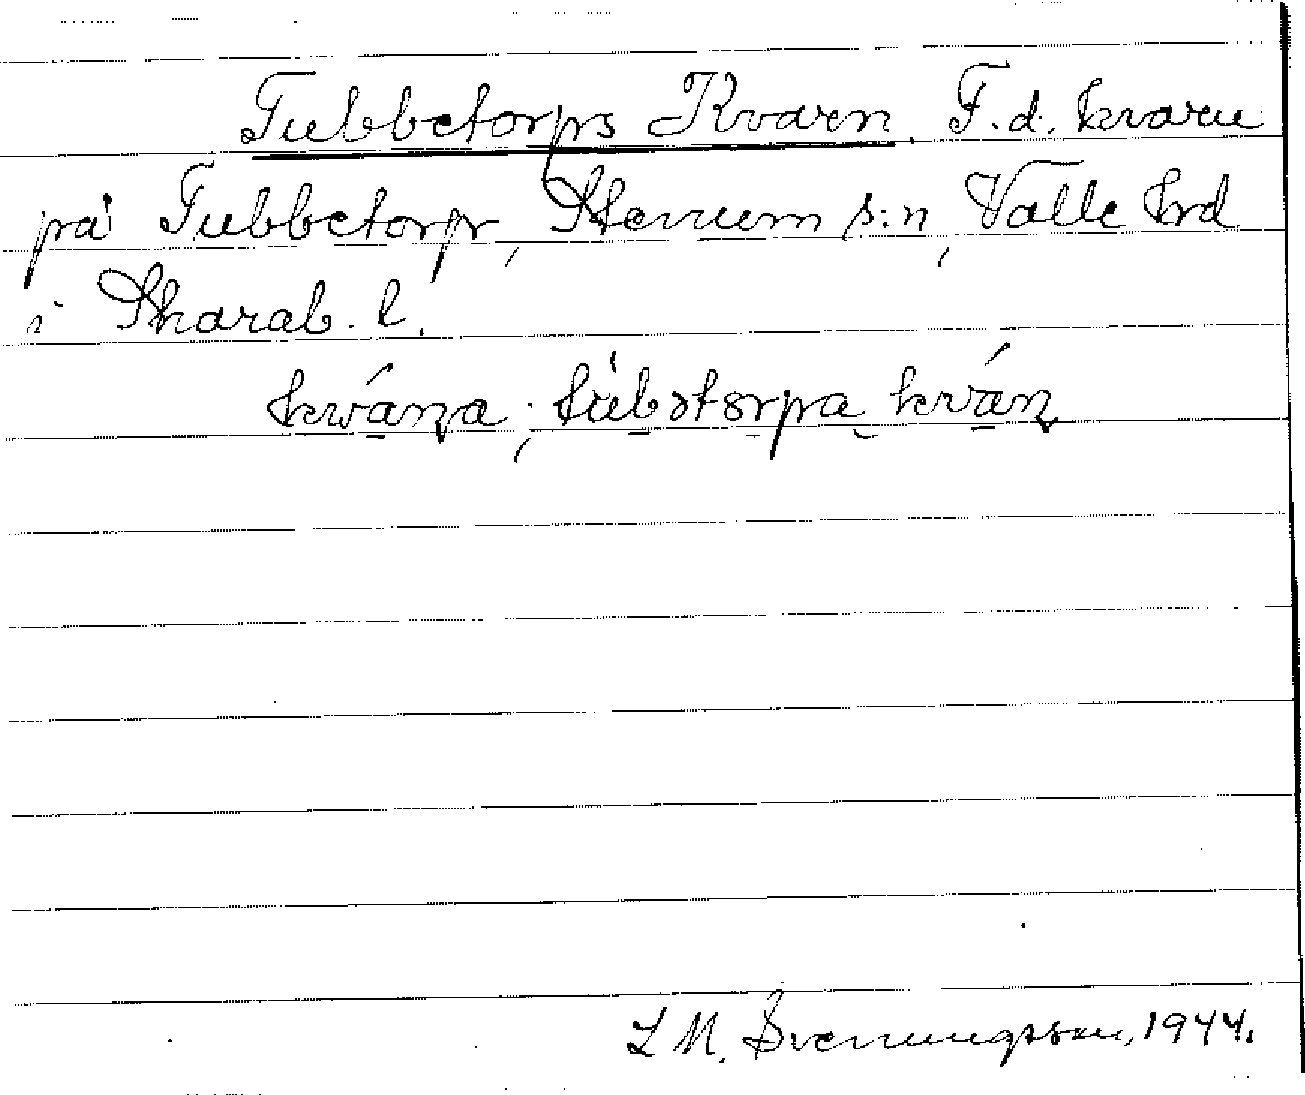 Tubbetorps Kvarn. F.d. kvarn
på Tubbetorp, Stenum s:n, Valle hrd
i Skarab. l.
kvána; túbətorpa kván
L M. Svenungsson, 1944.